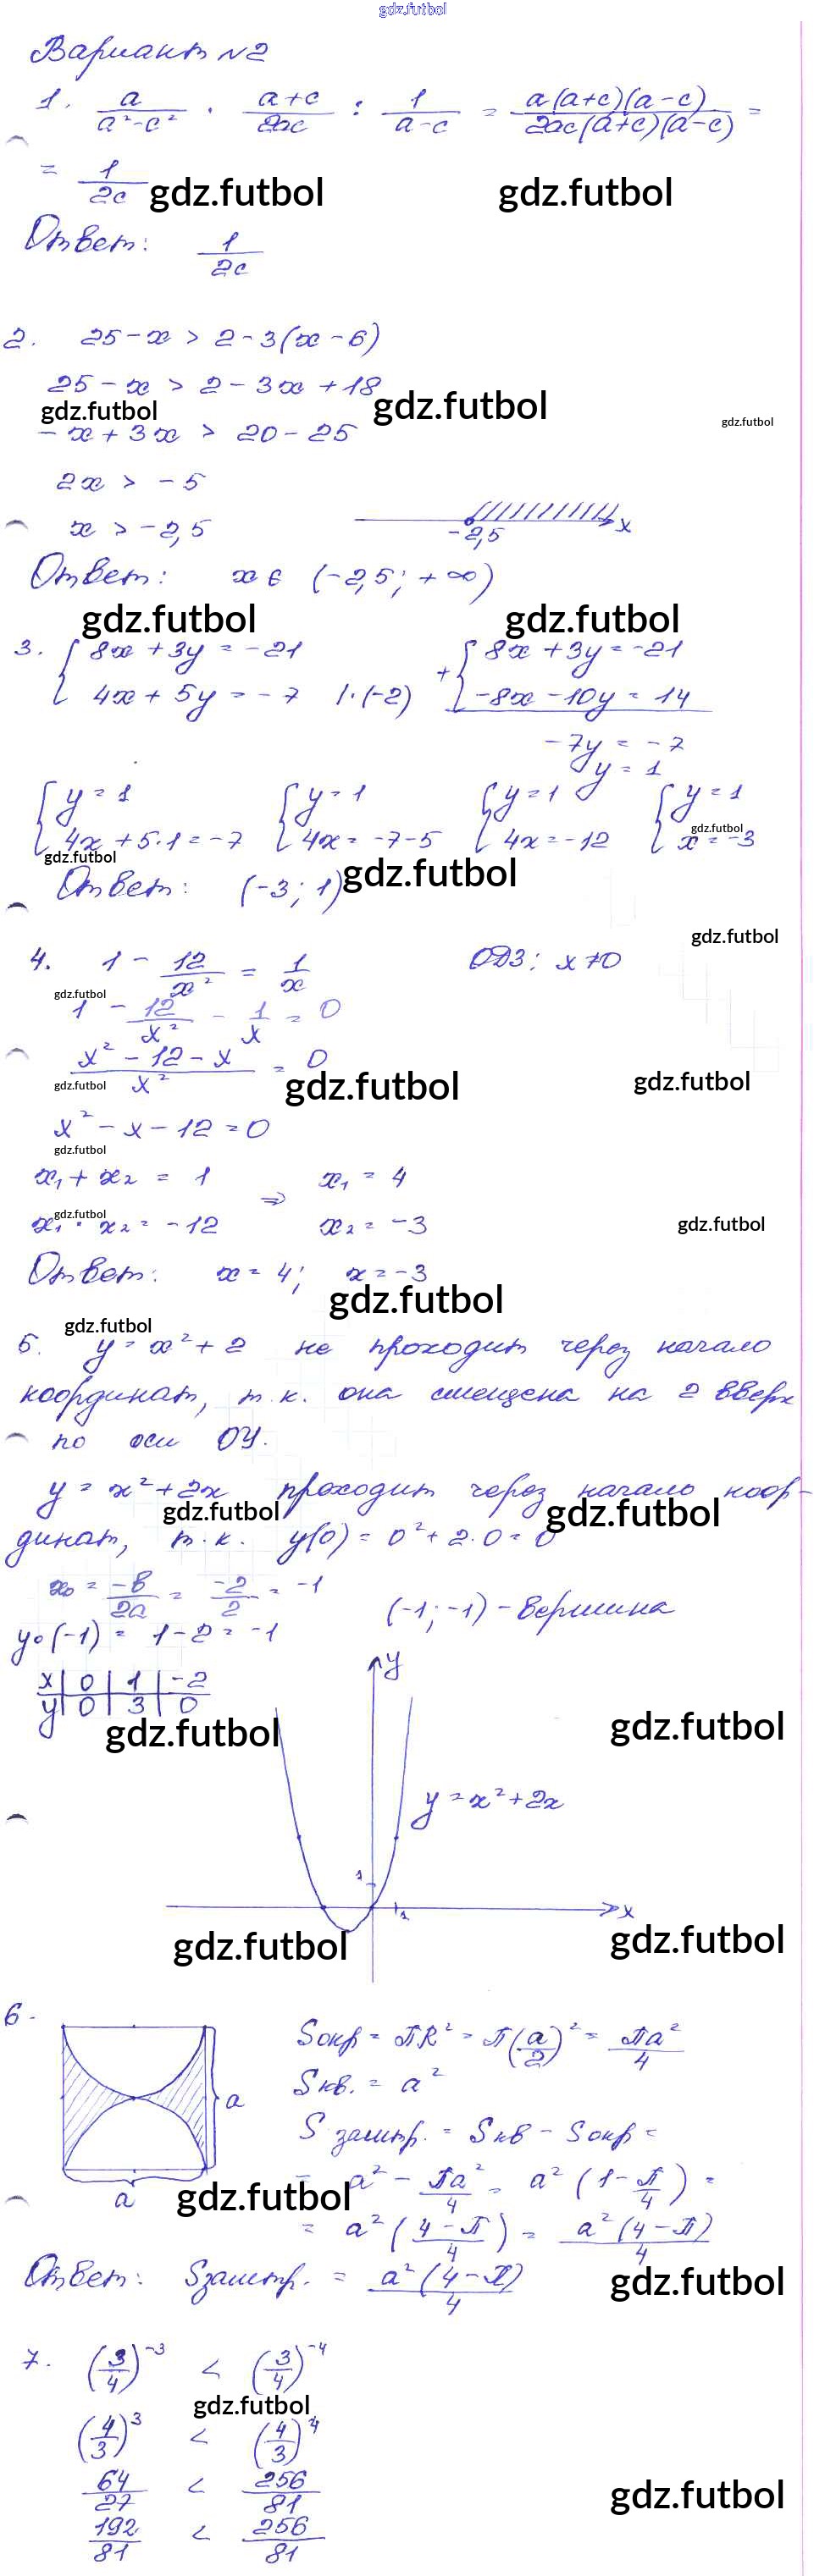 gdz.futbol
Вариант №2
1. a/(a²-c²) · (a+c)/(2ac) : 1/(a-c) = a(a+c)(a-c)/(2ac(a+c)(a-c)) =
= 1/(2c) gdz.futbol gdz.futbol
Ответ: 1/(2c)
2. 25-x > 2-3(x-6)
25-x > 2-3x+18
gdz.futbol gdz.futbol gdz.futbol
-x+3x > 20-25
2x > -5
x > -2,5 -2,5 x
Ответ: x ∈ (-2,5; +∞)
gdz.futbol gdz.futbol
3. { 8x+3y=-21 + { 8x+3y=-21
4x+5y=-7 |·(-2) -8x-10y=14
-7y=-7
y=1
{ y=1 { y=1 { y=1 { y=1
4x+5·1=-7 4x=-7-5 4x=-12 x=-3
gdz.futbol gdz.futbol
Ответ: (-3; 1) gdz.futbol
gdz.futbol
4. 1 - 12/x² = 1/x ОДЗ: x≠0
gdz.futbol
1 - 12/x² - 1/x = 0
(x²-12-x)/x² = 0
gdz.futbol gdz.futbol gdz.futbol
x²-x-12=0
gdz.futbol
x₁+x₂ = 1 ⇒ x₁ = 4
gdz.futbol gdz.futbol
x₁·x₂ = -12 x₂ = -3
Ответ: x=4; x=-3
gdz.futbol
gdz.futbol
5. y=x²+2 не проходит через начало
координат, т.к. она смещена на 2 вверх
по оси ОУ.
y=x²+2x проходит через начало коор-
gdz.futbol gdz.futbol
динат, т.к. y(0)=0²+2·0=0
x₀ = -в/2a = -2/2 = -1
(-1; -1) - вершина
y₀(-1) = 1-2 = -1
y
x | 0 | 1 | -2
y | 0 | 3 | 0
gdz.futbol gdz.futbol
y=x²+2x
1
1 x
gdz.futbol gdz.futbol
6. Sокр = πR² = π(a/2)² = πa²/4
Sкв. = a²
a
S заштр. = Sкв - Sокр =
= a² - πa²/4 = a²(1-π/4) =
a gdz.futbol
= a²((4-π)/4) = a²(4-π)/4
Ответ: Sзаштр. = a²(4-π)/4 gdz.futbol
7. (3/4)⁻³ < (3/4)⁻⁴
gdz.futbol
(4/3)³ < (4/3)⁴
64/27 < 256/81
gdz.futbol
192/81 < 256/81